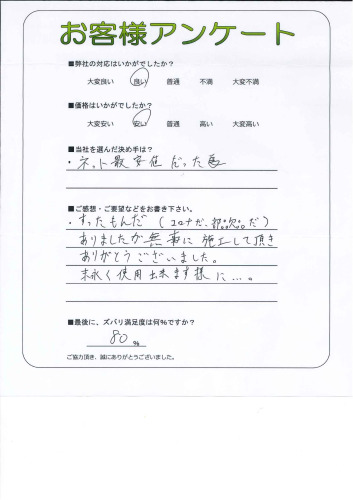 お客様アンケート
■弊社の対応はいかがでしたか?
大変良い 良い 普通 不満 大変不満
■価格はいかがでしたか?
大変安い 安い 普通 高い 大変高い
■当社を選んだ決め手は?
・ネット最安値だった
■ご感想・ご要望などをお書き下さい。
・すったもんだ(コロナだ、部品欠品だ)
ありましたが無事に施工して頂き
ありがとうございました。
末永く使用出来ます様に…。
■最後に、ズバリ満足度は何%ですか?
80%
ご協力頂き、誠にありがとうございました。